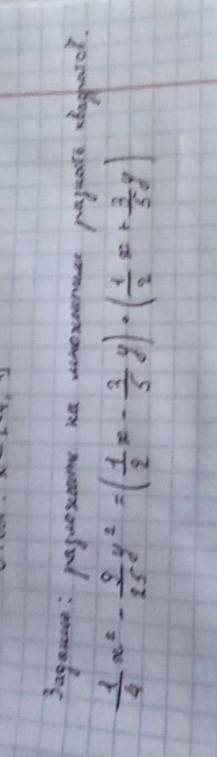 Задание: разложить на множители разность квадратов.
1/4 x² - 9/25 y² = (1/2 x - 3/5 y) · (1/2 x + 3/5 y)